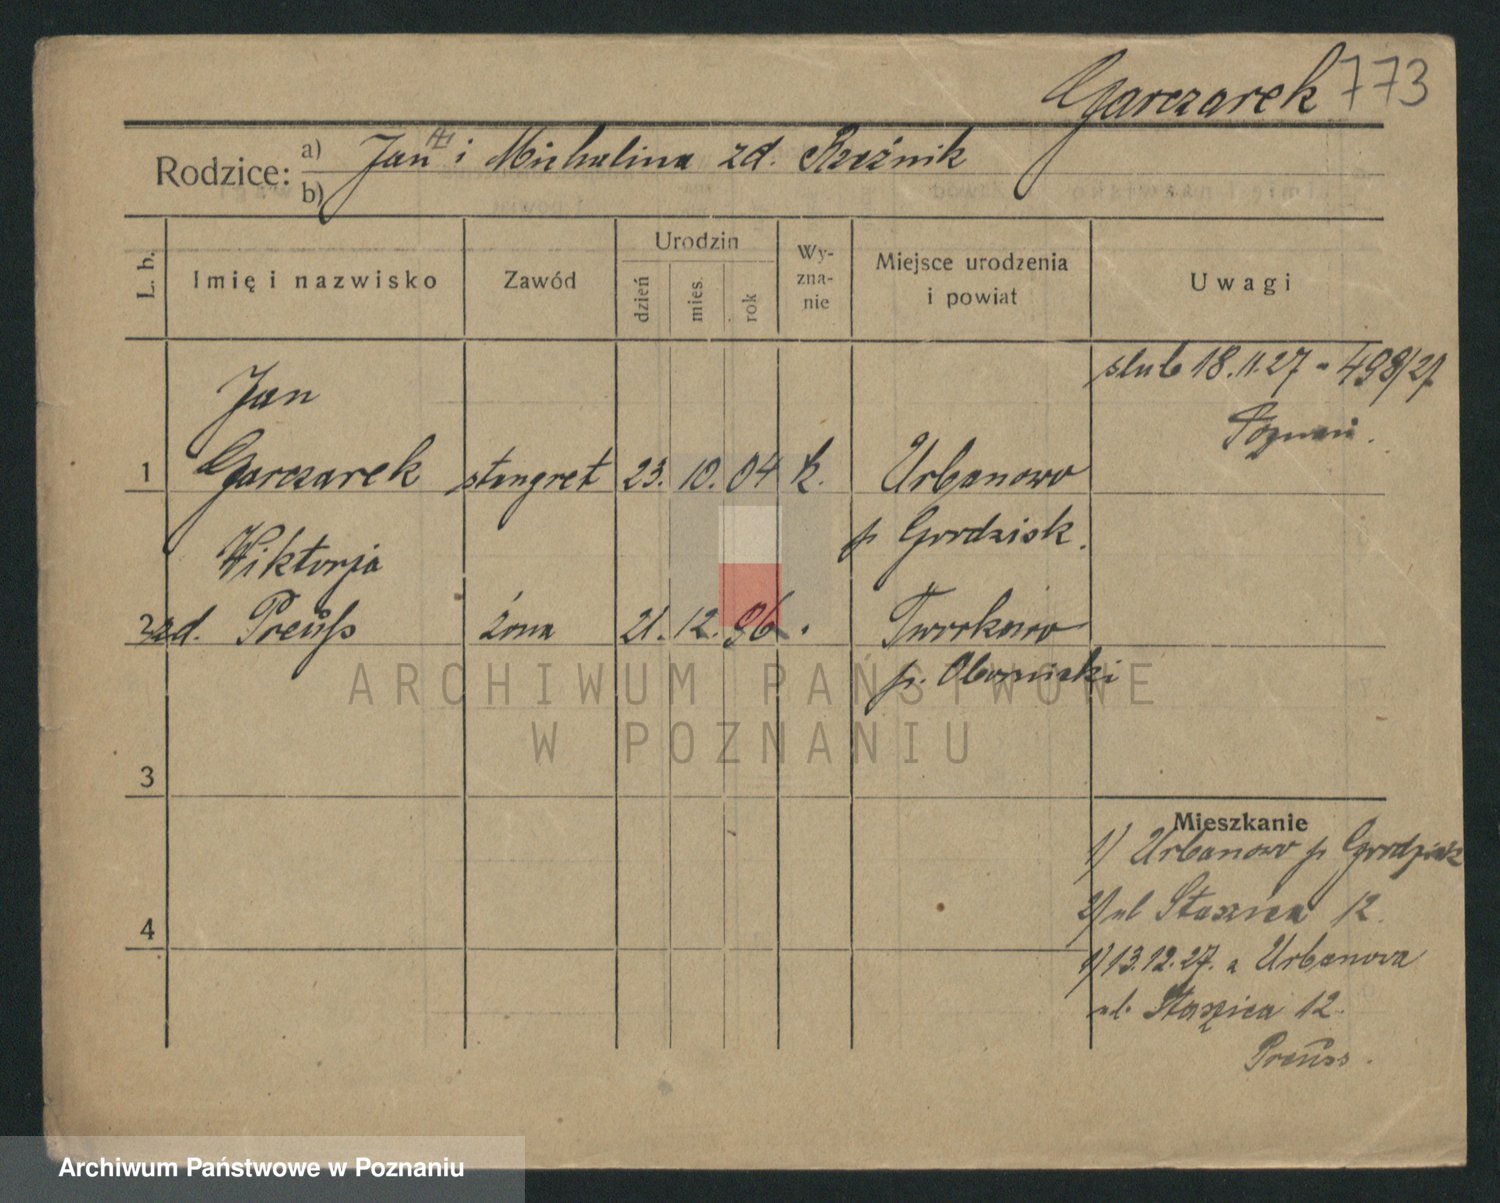 Garczarek 773
Rodzice: a) Jan i Michalina zd. Rzeźnik
b)
L. b.
Imię i nazwisko
Zawód
Urodzin
dzień
mies.
rok
Wy-
zna-
nie
Miejsce urodzenia
i powiat
Uwagi
ślub 18.11.27 - 498/27
Poznań.
Jan
1 Garczarek stangret 23. 10. 04 k. Urbanowo
p Grodzisk.
Wiktorja
2 zd. Preuß żona 21. 12. 96 Tworkowo
p. Obornicki
3
Mieszkanie
1) Urbanowo p Grodzisk
2) ul Staszica 12.
4
1) 13.12.27. a Urbanowa
ul. Staszica 12.
Preuss.
ARCHIWUM PAŃSTWOWE
W POZNANIU
Archiwum Państwowe w Poznaniu